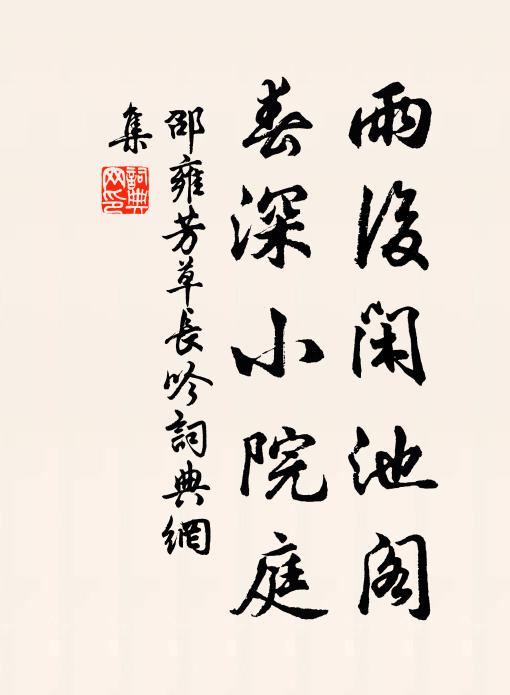 雨後閑池閣
春深小院庭
邵雍芳草長吟詞典網
集
詞典
网印